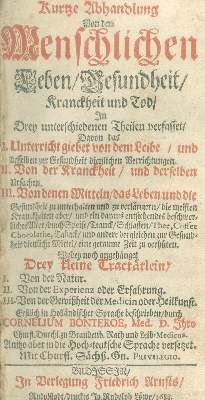 Kurtze Abhandlung
Von dem
Menschlichen
Leben/Gesundheit/
Kranckheit und Tod/
In
Drey unterschiedenen Theilen verfasset/
Davon das
I. Unterricht giebet von dem Leibe / und
desselben zur Gesundheit dienlichen Verrichtungen.
II. Von der Kranckheit / und derselben
Ursachen.
III. Von denen Mitteln/das Leben und die
Gesundheit zu unterhalten und zu verlängern/ die meisten
Kranckheiten aber/ und ein daraus entstehendes beschwer-
liches Alter/durch Speise/Tranck/Schlaffen/Thee/Coffee
Chocolate/Taback/ und andere dergleichen zur Gesund-
heit dienliche Mittel/ eine geraume Zeit zu verhüten.
Wobey noch angehänget
Drey kleine Tractätlein/
I. Von der Natur.
II. Von der Experienz oder Erfahrung.
III. Von der Gewißheit der Medicin oder Heilkunst.
Erstlich in Holländischer Sprache beschrieben/durch
CORNELIUM BONTEKOE, Med. D. Ihro
Churfl. Durchl. zu Brandenb. Rath und Leib-Medicus.
Anitzo aber in die Hoch-teutsche Sprache versetzet.
Mit Churfl. Sächß. Gn. PRIVILEGIO.
BUDISSIN/
In Verlegung Friedrich Arnsts/
Rudolstadt/druckts